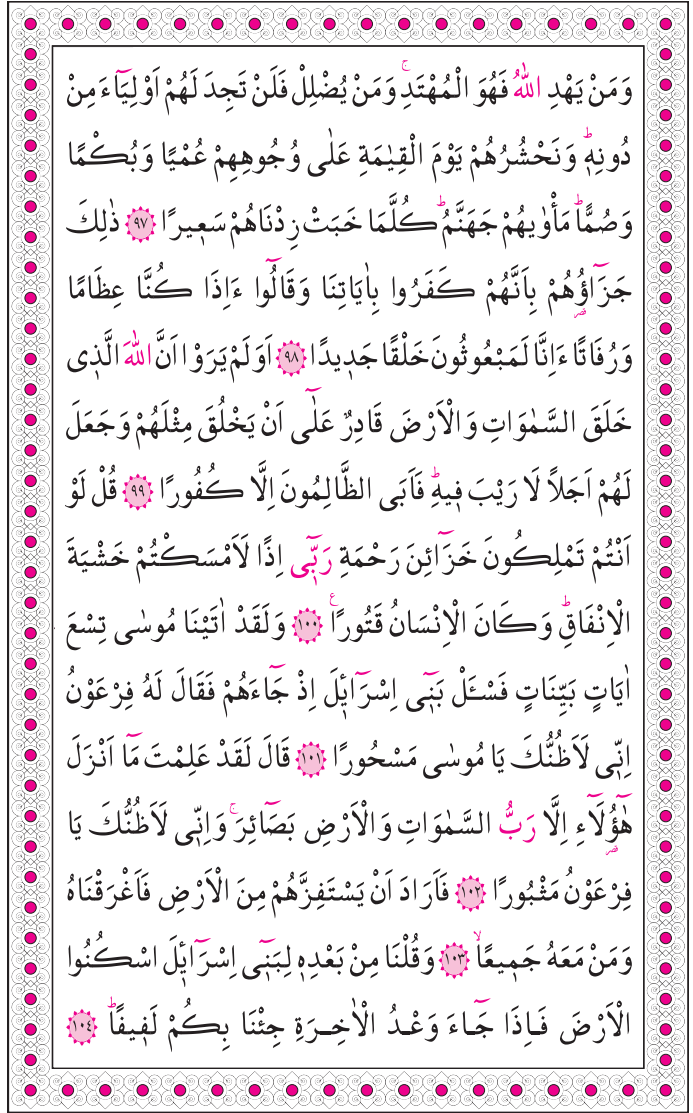 وَمَنْ يَهْدِ اللّٰهُ فَهُوَ الْمُهْتَدِۚ وَمَنْ يُضْلِلْ فَلَنْ تَجِدَ لَهُمْ اَوْلِيَٓاءَ مِنْ
دُونِه۪ۜ وَنَحْشُرُهُمْ يَوْمَ الْقِيٰمَةِ عَلٰى وُجُوهِهِمْ عُمْيًا وَبُكْمًا
وَصُمًّاۜ مَأْوٰيهُمْ جَهَنَّمُۜ كُلَّمَا خَبَتْ زِدْنَاهُمْ سَع۪يرًا ﴿٩٧﴾ ذٰلِكَ
جَزَٓاؤُ۬هُمْ بِاَنَّهُمْ كَفَرُوا بِاٰيَاتِنَا وَقَالُٓوا ءَاِذَا كُنَّا عِظَامًا
وَرُفَاتًا ءَاِنَّا لَمَبْعُوثُونَ خَلْقًا جَد۪يدًا ﴿٩٨﴾ اَوَلَمْ يَرَوْا اَنَّ اللّٰهَ الَّذ۪ى
خَلَقَ السَّمٰوَاتِ وَالْاَرْضَ قَادِرٌ عَلٰٓى اَنْ يَخْلُقَ مِثْلَهُمْ وَجَعَلَ
لَهُمْ اَجَلًا لَا رَيْبَ ف۪يهِۜ فَاَبَى الظَّالِمُونَ اِلَّا كُفُورًا ﴿٩٩﴾ قُلْ لَوْ
اَنْتُمْ تَمْلِكُونَ خَزَٓائِنَ رَحْمَةِ رَبّ۪ٓى اِذًا لَاَمْسَكْتُمْ خَشْيَةَ
الْاِنْفَاقِۜ وَكَانَ الْاِنْسَانُ قَتُورًا۟ ﴿١٠٠﴾ وَلَقَدْ اٰتَيْنَا مُوسٰى تِسْعَ
اٰيَاتٍ بَيِّنَاتٍ فَسْـَٔلْ بَن۪ٓى اِسْرَٓائ۪لَ اِذْ جَٓاءَهُمْ فَقَالَ لَهُ فِرْعَوْنُ
اِنّ۪ى لَاَظُنُّكَ يَا مُوسٰى مَسْحُورًا ﴿١٠١﴾ قَالَ لَقَدْ عَلِمْتَ مَٓا اَنْزَلَ
هٰٓؤُ۬لَٓاءِ اِلَّا رَبُّ السَّمٰوَاتِ وَالْاَرْضِ بَصَٓائِرَۚ وَاِنّ۪ى لَاَظُنُّكَ يَا
فِرْعَوْنُ مَثْبُورًا ﴿١٠٢﴾ فَاَرَادَ اَنْ يَسْتَفِزَّهُمْ مِنَ الْاَرْضِ فَاَغْرَقْنَاهُ
وَمَنْ مَعَهُ جَم۪يعًاۙ ﴿١٠٣﴾ وَقُلْنَا مِنْ بَعْدِه۪ لِبَن۪ٓى اِسْرَٓائ۪لَ اسْكُنُوا
الْاَرْضَ فَاِذَا جَٓاءَ وَعْدُ الْاٰخِرَةِ جِئْنَا بِكُمْ لَف۪يفًاۜ ﴿١٠٤﴾